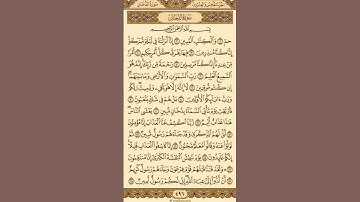 الجزء الخامس والعشرون سورة الدخان
سورة الدخان
بسم الله الرحمن الرحيم
حمٓ ۝١ وَٱلْكِتَٰبِ ٱلْمُبِينِ ۝٢ إِنَّآ أَنزَلْنَٰهُ فِى لَيْلَةٍ مُّبَٰرَكَةٍ
إِنَّا كُنَّا مُنذِرِينَ ۝٣ فِيهَا يُفْرَقُ كُلُّ أَمْرٍ حَكِيمٍ ۝٤ أَمْرًا
مِّنْ عِندِنَآ إِنَّا كُنَّا مُرْسِلِينَ ۝٥ رَحْمَةً مِّن رَّبِّكَ إِنَّهُۥ هُوَ
ٱلسَّمِيعُ ٱلْعَلِيمُ ۝٦ رَبِّ ٱلسَّمَٰوَٰتِ وَٱلْأَرْضِ وَمَا بَيْنَهُمَآ
إِن كُنتُم مُّوقِنِينَ ۝٧ لَآ إِلَٰهَ إِلَّا هُوَ يُحْىِۦ وَيُمِيتُ رَبُّكُمْ
وَرَبُّ ءَابَآئِكُمُ ٱلْأَوَّلِينَ ۝٨ بَلْ هُمْ فِى شَكٍّ يَلْعَبُونَ ۝٩
فَٱرْتَقِبْ يَوْمَ تَأْتِى ٱلسَّمَآءُ بِدُخَانٍ مُّبِينٍ ۝١٠ يَغْشَى ٱلنَّاسَ
هَٰذَا عَذَابٌ أَلِيمٌ ۝١١ رَّبَّنَا ٱكْشِفْ عَنَّا ٱلْعَذَابَ إِنَّا مُؤْمِنُونَ ۝١٢
أَنَّىٰ لَهُمُ ٱلذِّكْرَىٰ وَقَدْ جَآءَهُمْ رَسُولٌ مُّبِينٌ ۝١٣ ثُمَّ تَوَلَّوْا۟
عَنْهُ وَقَالُوا۟ مُعَلَّمٌ مَّجْنُونٌ ۝١٤ إِنَّا كَاشِفُوا۟ ٱلْعَذَابِ قَلِيلًا إِنَّكُمْ
عَآئِدُونَ ۝١٥ يَوْمَ نَبْطِشُ ٱلْبَطْشَةَ ٱلْكُبْرَىٰٓ إِنَّا مُنتَقِمُونَ
۝١٦ وَلَقَدْ فَتَنَّا قَبْلَهُمْ قَوْمَ فِرْعَوْنَ وَجَآءَهُمْ رَسُولٌ كَرِيمٌ ۝١٧
أَنْ أَدُّوٓا۟ إِلَىَّ عِبَادَ ٱللَّهِ إِنِّى لَكُمْ رَسُولٌ أَمِينٌ ۝١٨
٤٩٦